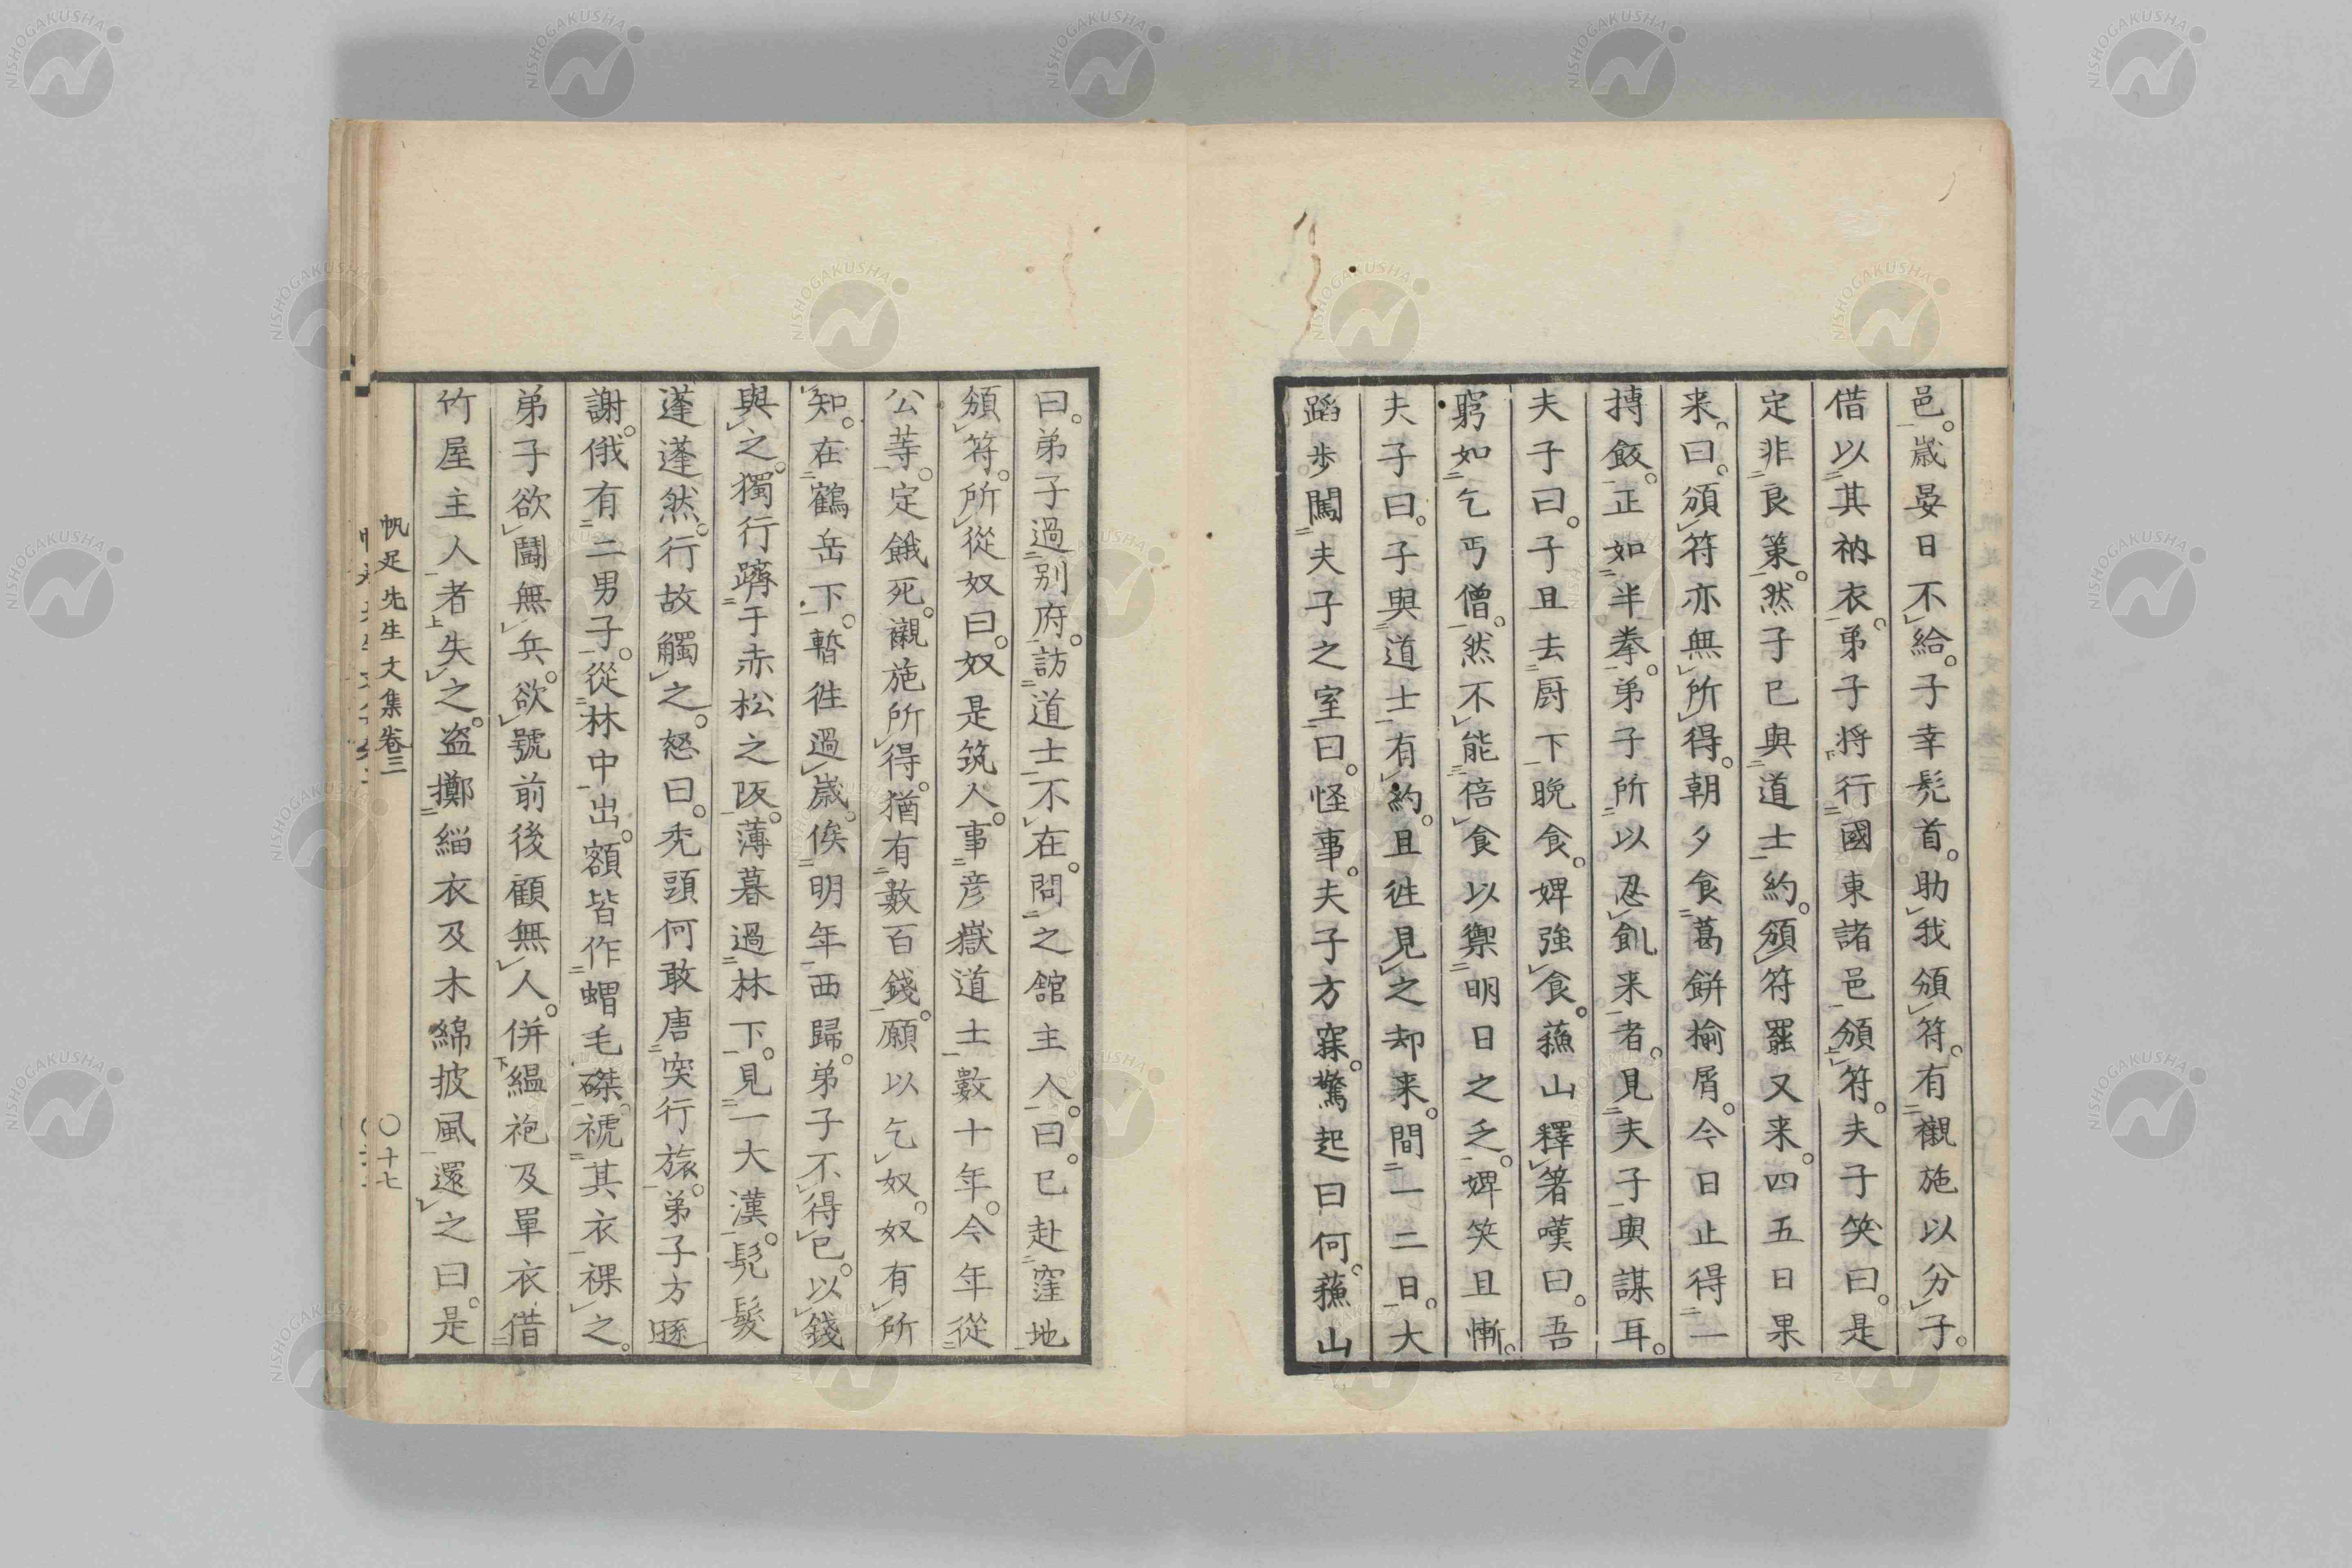 邑。歳晏日不給。子幸髡首。助我頒符。有襯施以分子。
借以其衲衣。弟子将行國東諸邑頒符。夫子笑曰。是
定非良策。然子已與道士約。頒符罷又来。四五日果
来。曰。頒符亦無所得。朝夕食葛餅揄屑。今日止得一
摶飯。正如半拳。弟子所以忍飢来者。見夫子與謀耳。
夫子曰。子且去厨下晩食。婢強食。蘓山釋箸嘆曰。吾
窮如乞丐僧。然不能倍食以禦明日之乏。婢笑且慚。
夫子曰。子與道士有約。且徃見之却来。間一二日。大
蹈歩闖夫子之室曰。怪事。夫子方寐。驚起曰何。蘓山
曰。弟子過別府。訪道士不在。問之舘主人。曰。已赴窪地
頒符。所從奴曰。奴是筑人。事彦嶽道士數十年。今年從
公等。定餓死。襯施所得。猶有數百錢。願以乞奴。奴有所
知。在鶴岳下。暫徃過歳。俟明年西歸。弟子不得已。以錢
與之。獨行躋于赤松之阪。薄暮過林下。見一大漢。髡髮
蓬蓬然。行故觸之。怒曰。禿頭何敢唐突行旅。弟子方
謝。俄有二男子。從林中出。額皆作蝟毛磔。褫其衣裸之。
弟子欲鬪無兵。欲號前後顧無人。併緼袍及單衣借
竹屋主人者失之。盜擲緇衣及木綿披風還之曰。是
帆足先生文集卷三
〇十七
NISHOGAKUSHA